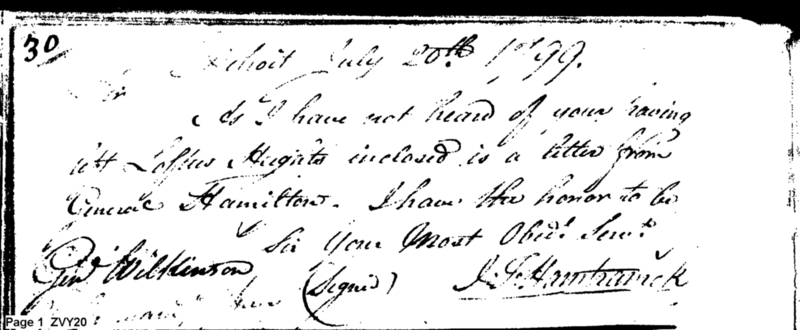 30
Detroit July 20th. 1799.
Sir
As I have not heard of your having
left Loftus Heights inclosed is a letter from
General Hamilton. I have the honor to be
Sir Your Most Obedt. Servt.
Genl Wilkinson (Signed) J. F. Hamtramck
Page 1 ZVY20